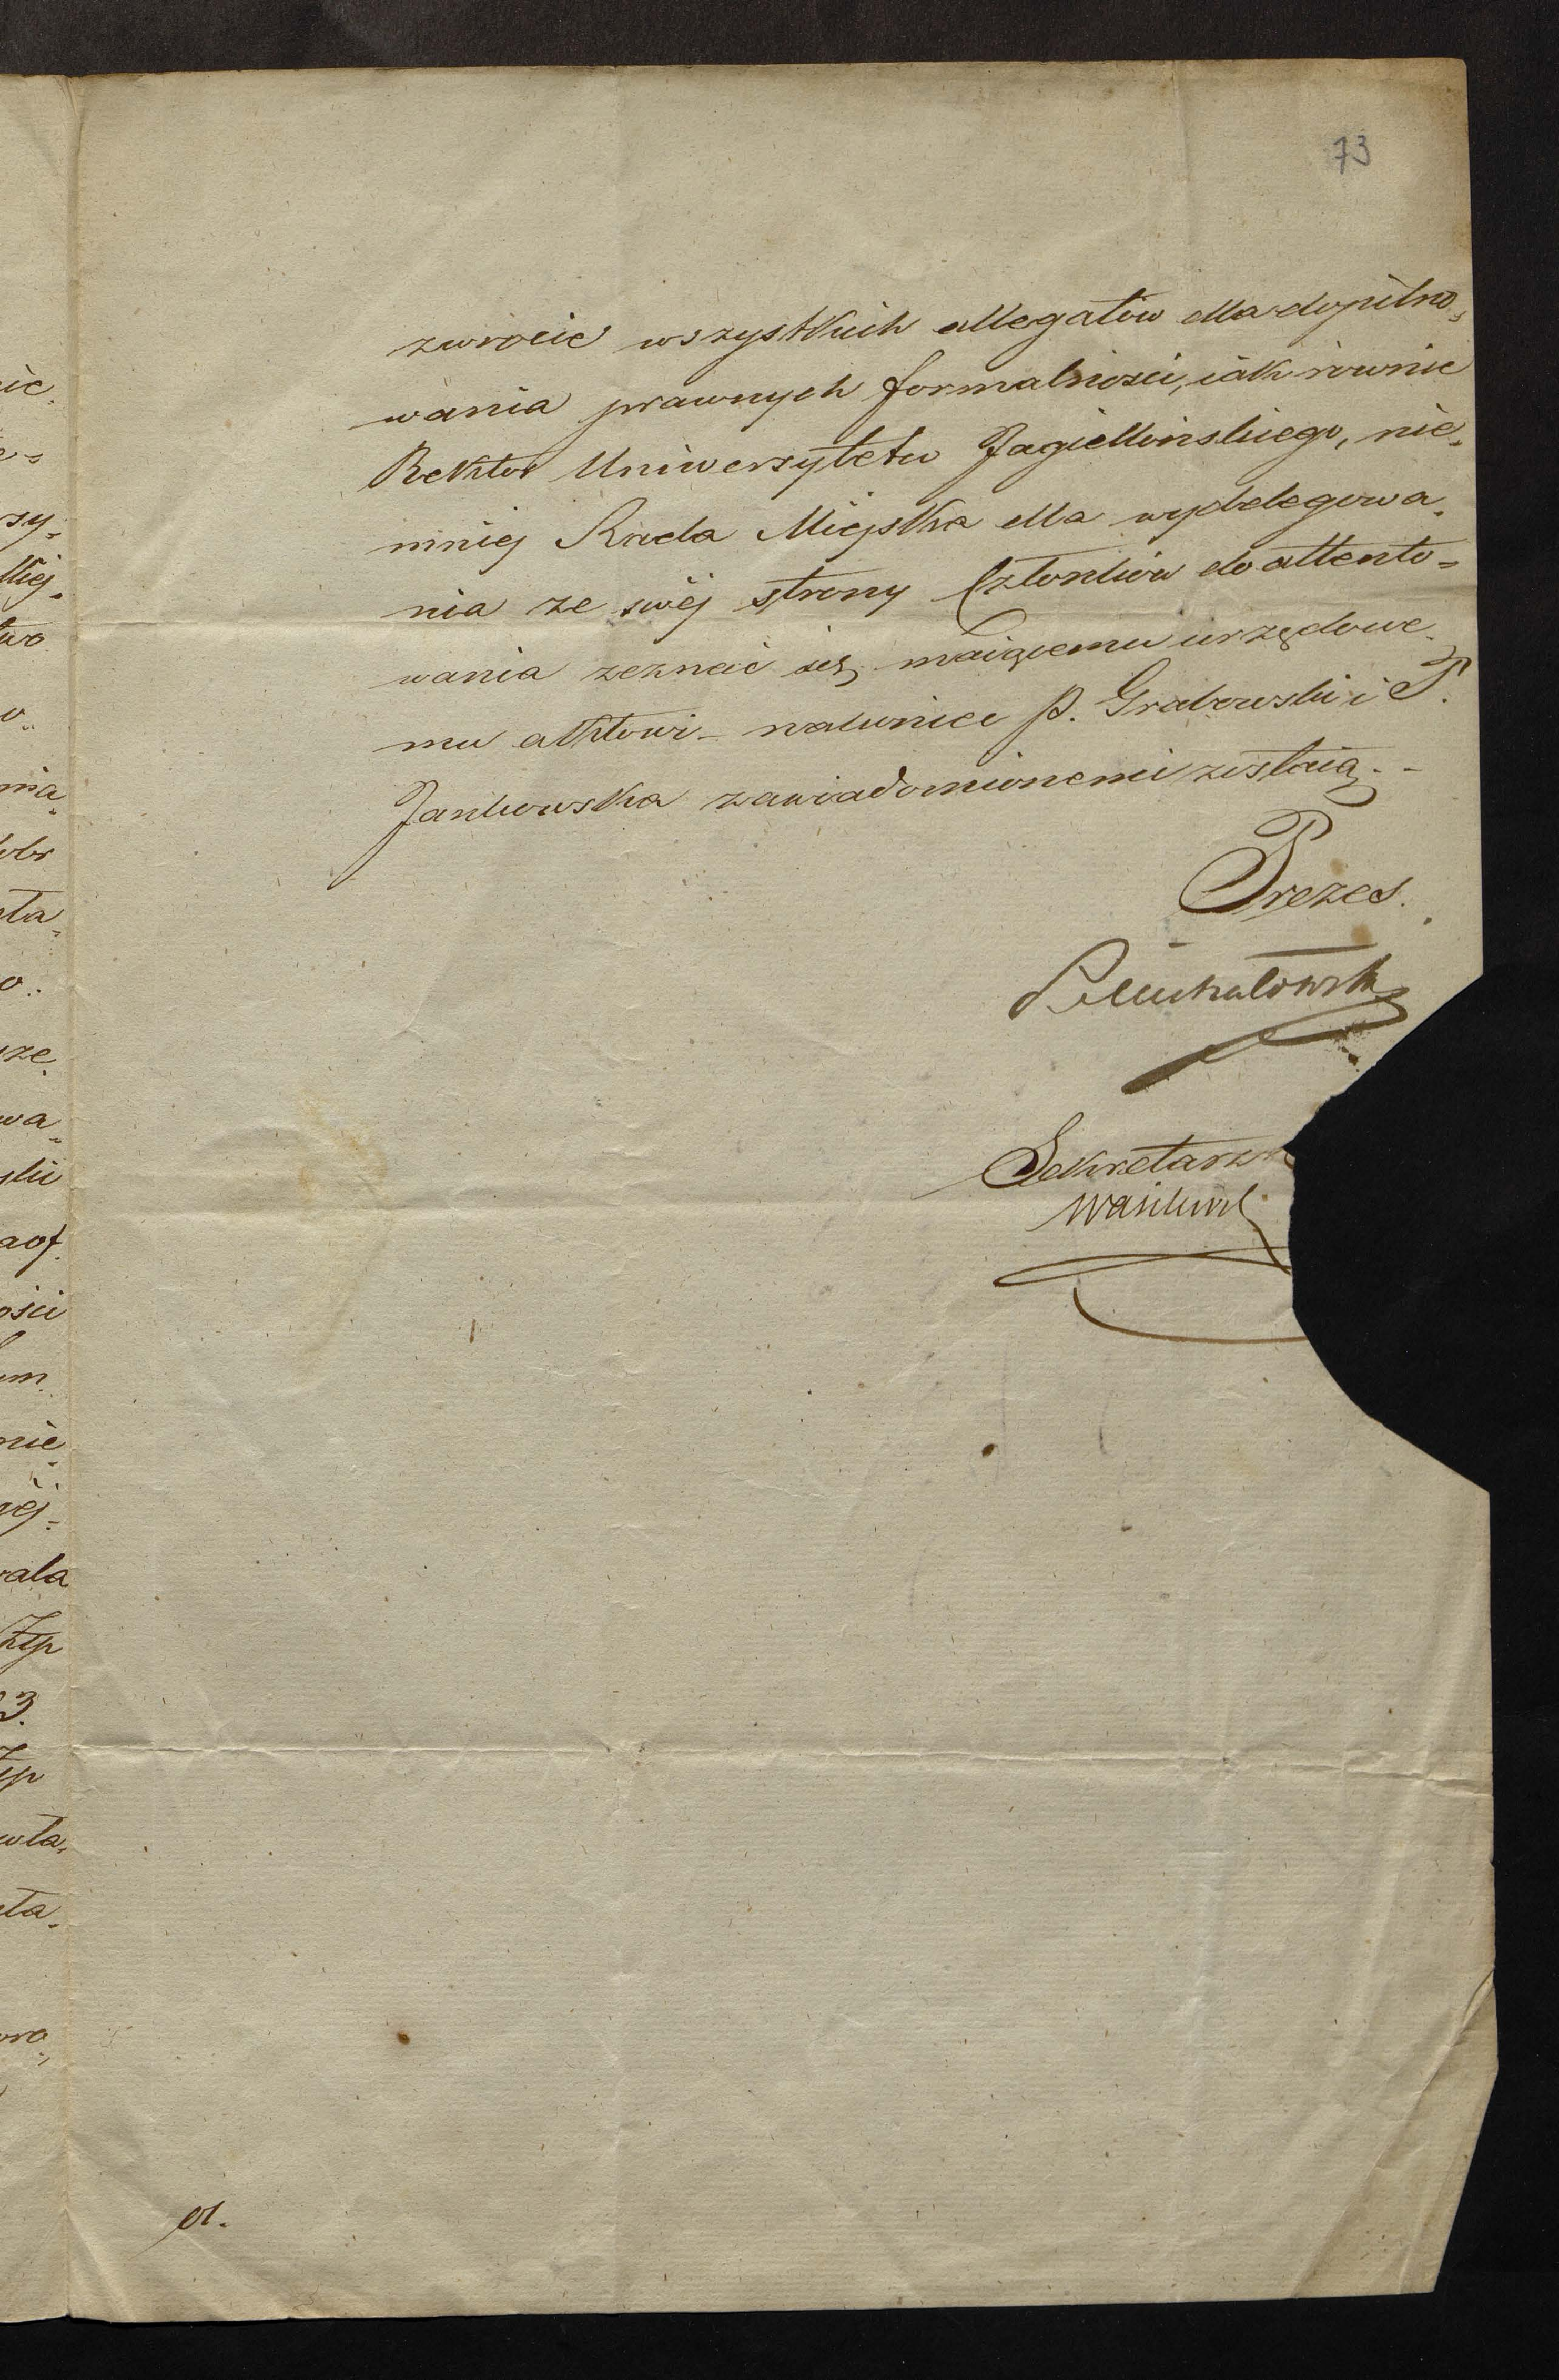 73
zwrócić wszystkich allegatów dla dopilno-
wania prawnych formalności, iak rownie
Rektor Uniwersytetu Jagiellońskiego, nie-
mniej Rada Miejska dla wydelegowa-
nia ze swéj strony Członków do attento-
wania zeznać się maiącemu urzędowe-
mu aktowi – nakoniec P. Grabowski i P.
Jankowska zawiadomionemi zostaią. -
Prezes.
PMichałowski
Sekretarz
Wasilewsk
ic
rzy-
two
nia-
obr
ta-
o..
że
wa-
ski
ości
nie
ała
Złp
3.
Złp
wła-
ta-